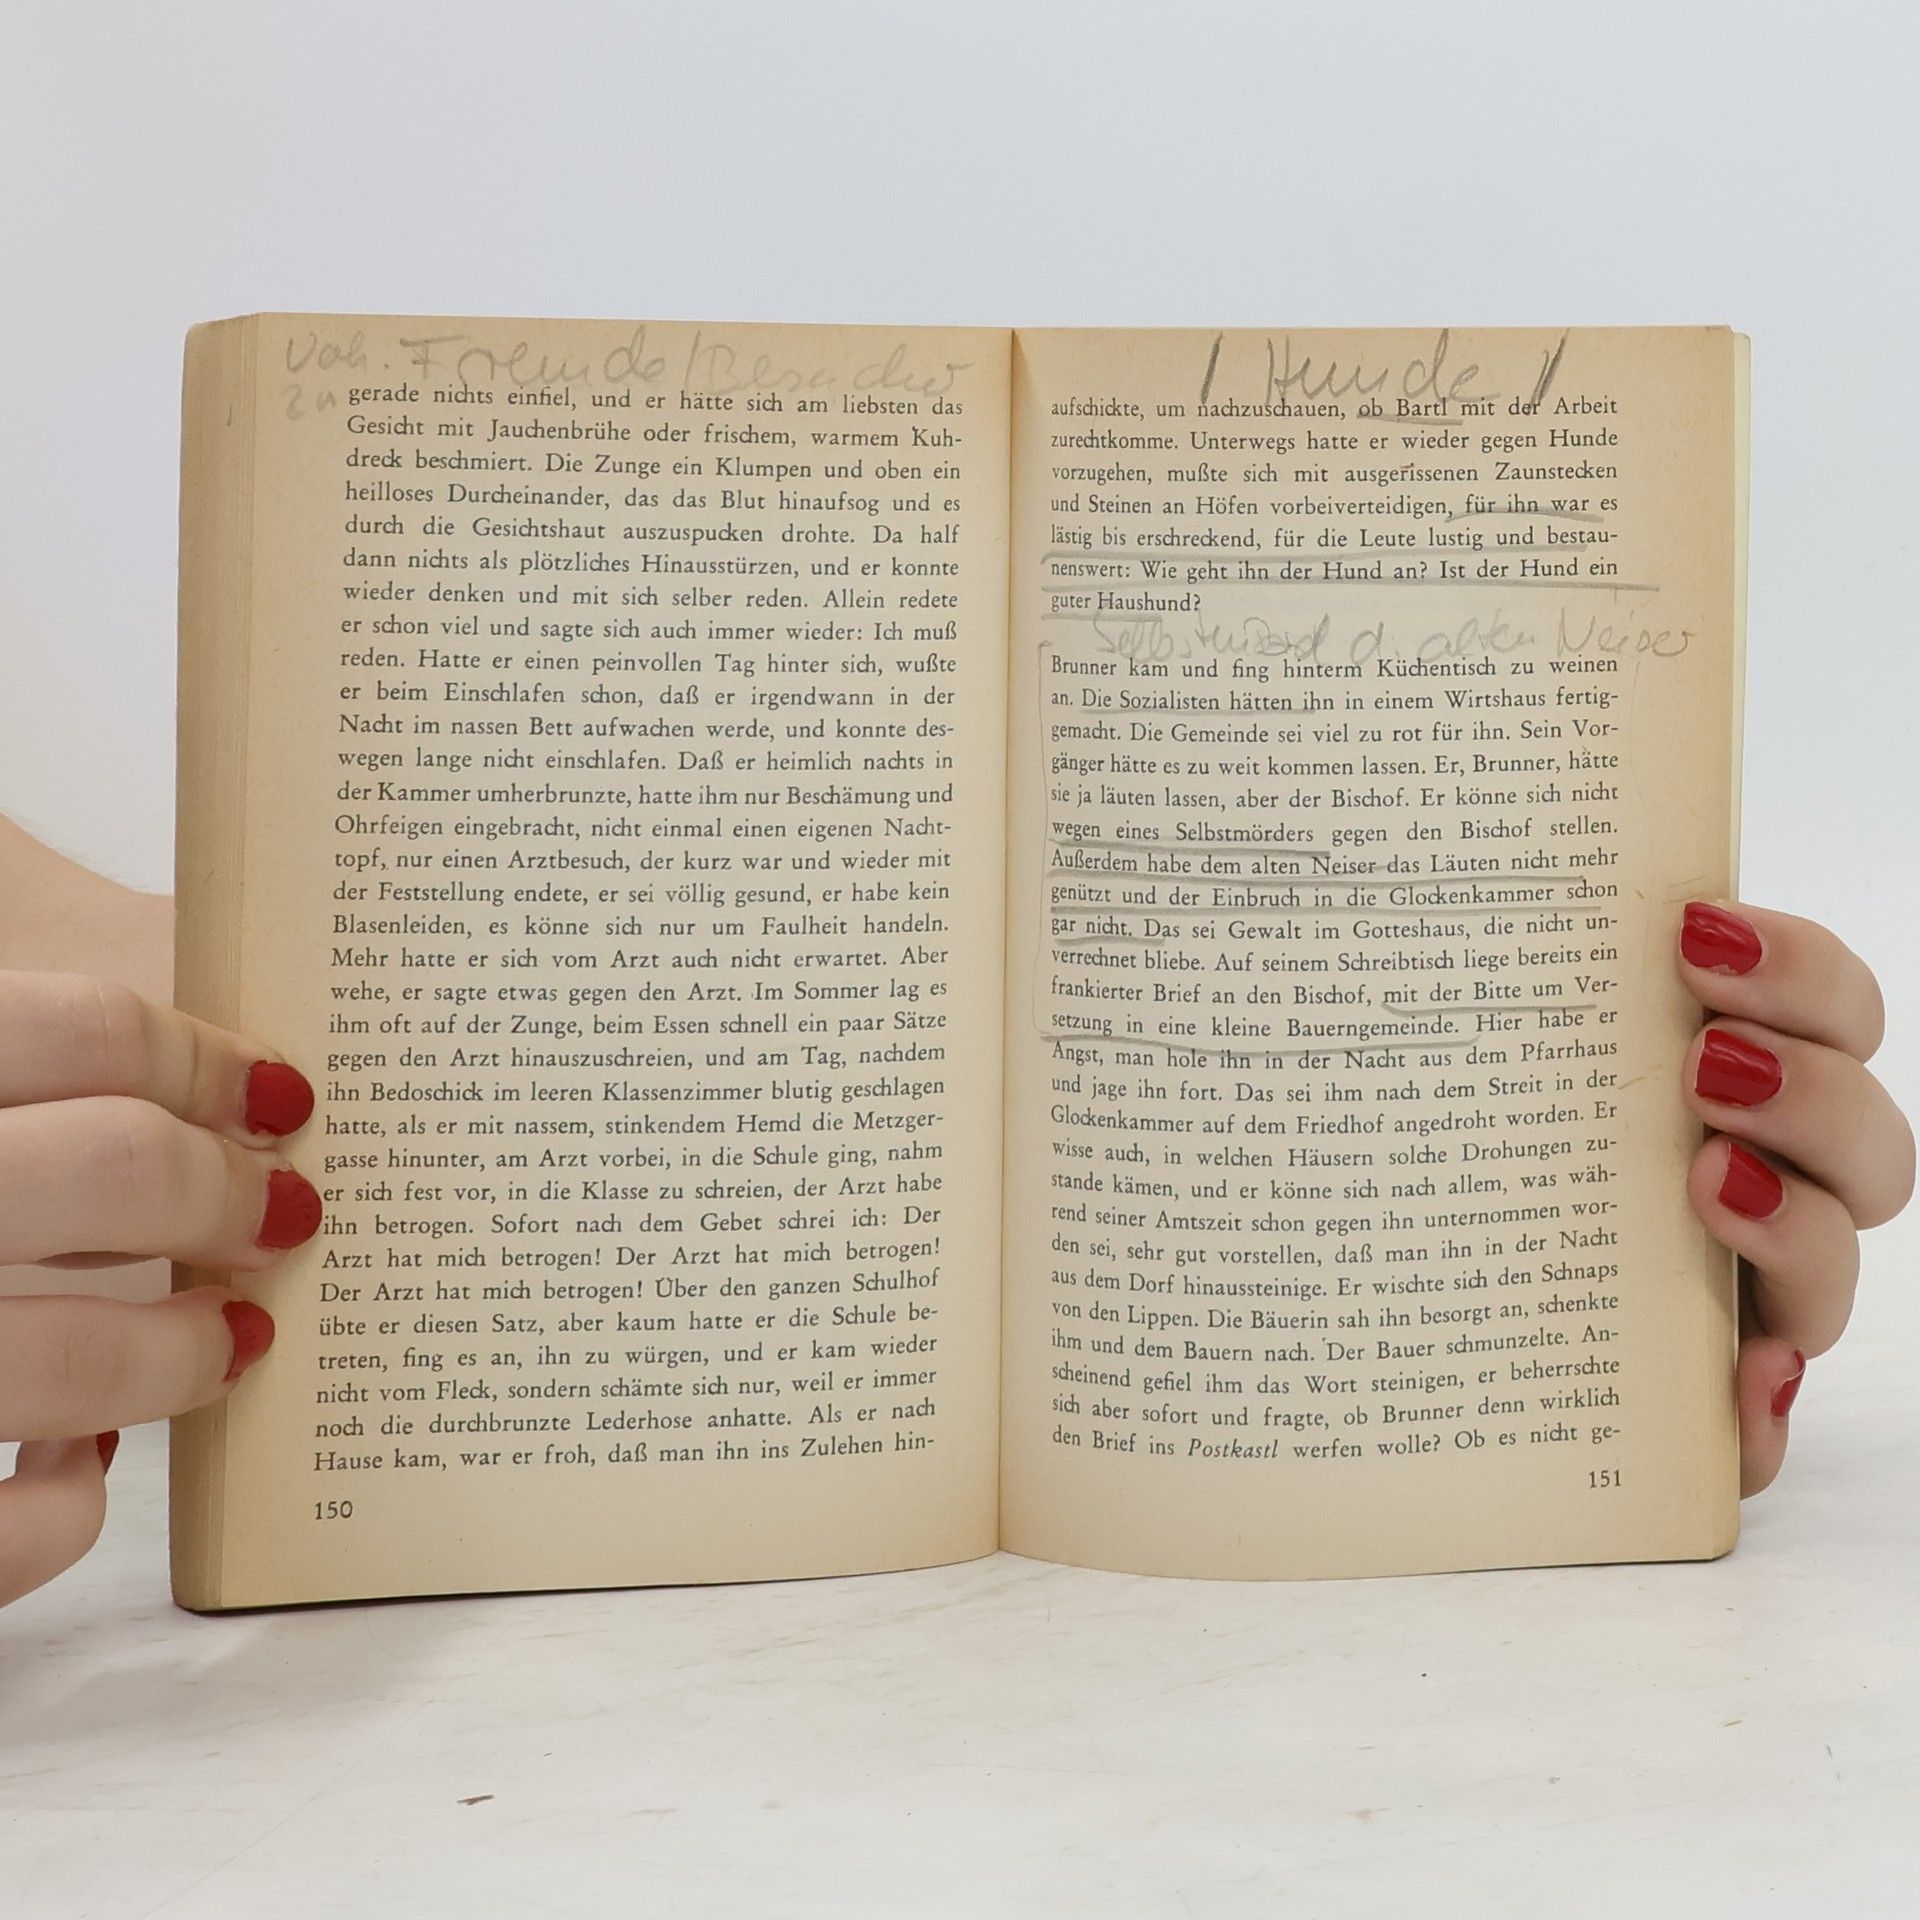 Fremde / Besucher
gerade nichts einfiel, und er hätte sich am liebsten das
Gesicht mit Jauchenbrühe oder frischem, warmem Kuh-
dreck beschmiert. Die Zunge ein Klumpen und oben ein
heilloses Durcheinander, das das Blut hinaufsog und es
durch die Gesichtshaut auszuspucken drohte. Da half
dann nichts als plötzliches Hinausstürzen, und er konnte
wieder denken und mit sich selber reden. Allein redete
er schon viel und sagte sich auch immer wieder: Ich muß
reden. Hatte er einen peinvollen Tag hinter sich, wußte
er beim Einschlafen schon, daß er irgendwann in der
Nacht im nassen Bett aufwachen werde, und konnte des-
wegen lange nicht einschlafen. Daß er heimlich nachts in
der Kammer umherbrunzte, hatte ihm nur Beschämung und
Ohrfeigen eingebracht, nicht einmal einen eigenen Nacht-
topf, nur einen Arztbesuch, der kurz war und wieder mit
der Feststellung endete, er sei völlig gesund, er habe kein
Blasenleiden, es könne sich nur um Faulheit handeln.
Mehr hatte er sich vom Arzt auch nicht erwartet. Aber
wehe, er sagte etwas gegen den Arzt. Im Sommer lag es
ihm oft auf der Zunge, beim Essen schnell ein paar Sätze
gegen den Arzt hinauszuschreien, und am Tag, nachdem
ihn Bedoschick im leeren Klassenzimmer blutig geschlagen
hatte, als er mit nassem, stinkendem Hemd die Metzger-
gasse hinunter, am Arzt vorbei, in die Schule ging, nahm
er sich fest vor, in die Klasse zu schreien, der Arzt habe
ihn betrogen. Sofort nach dem Gebet schrei ich: Der
Arzt hat mich betrogen! Der Arzt hat mich betrogen!
Der Arzt hat mich betrogen! Über den ganzen Schulhof
übte er diesen Satz, aber kaum hatte er die Schule be-
treten, fing es an, ihn zu würgen, und er kam wieder
nicht vom Fleck, sondern schämte sich nur, weil er immer
noch die durchbrunzte Lederhose anhatte. Als er nach
Hause kam, war er froh, daß man ihn ins Zulehen hin-
150
/ Hunde /
aufschickte, um nachzuschauen, ob Bartl mit der Arbeit
zurechtkomme. Unterwegs hatte er wieder gegen Hunde
vorzugehen, mußte sich mit ausgerissenen Zaunstecken
und Steinen an Höfen vorbeiverteidigen, für ihn war es
lästig bis erschreckend, für die Leute lustig und bestau-
nenswert: Wie geht ihn der Hund an? Ist der Hund ein
guter Haushund?
Selbstmord d. alten Neiser
Brunner kam und fing hinterm Küchentisch zu weinen
an. Die Sozialisten hätten ihn in einem Wirtshaus fertig-
gemacht. Die Gemeinde sei viel zu rot für ihn. Sein Vor-
gänger hätte es zu weit kommen lassen. Er, Brunner, hätte
sie ja läuten lassen, aber der Bischof. Er könne sich nicht
wegen eines Selbstmörders gegen den Bischof stellen.
Außerdem habe dem alten Neiser das Läuten nicht mehr
genützt und der Einbruch in die Glockenkammer schon
gar nicht. Das sei Gewalt im Gotteshaus, die nicht un-
verrechnet bliebe. Auf seinem Schreibtisch liege bereits ein
frankierter Brief an den Bischof, mit der Bitte um Ver-
setzung in eine kleine Bauerngemeinde. Hier habe er
Angst, man hole ihn in der Nacht aus dem Pfarrhaus
und jage ihn fort. Das sei ihm nach dem Streit in der
Glockenkammer auf dem Friedhof angedroht worden. Er
wisse auch, in welchen Häusern solche Drohungen zu-
stande kämen, und er könne sich nach allem, was wäh-
rend seiner Amtszeit schon gegen ihn unternommen wor-
den sei, sehr gut vorstellen, daß man ihn in der Nacht
aus dem Dorf hinaussteinige. Er wischte sich den Schnaps
von den Lippen. Die Bäuerin sah ihn besorgt an, schenkte
ihm und dem Bauern nach. Der Bauer schmunzelte. An-
scheinend gefiel ihm das Wort steinigen, er beherrschte
sich aber sofort und fragte, ob Brunner denn wirklich
den Brief ins Postkastl werfen wolle? Ob es nicht ge-
151